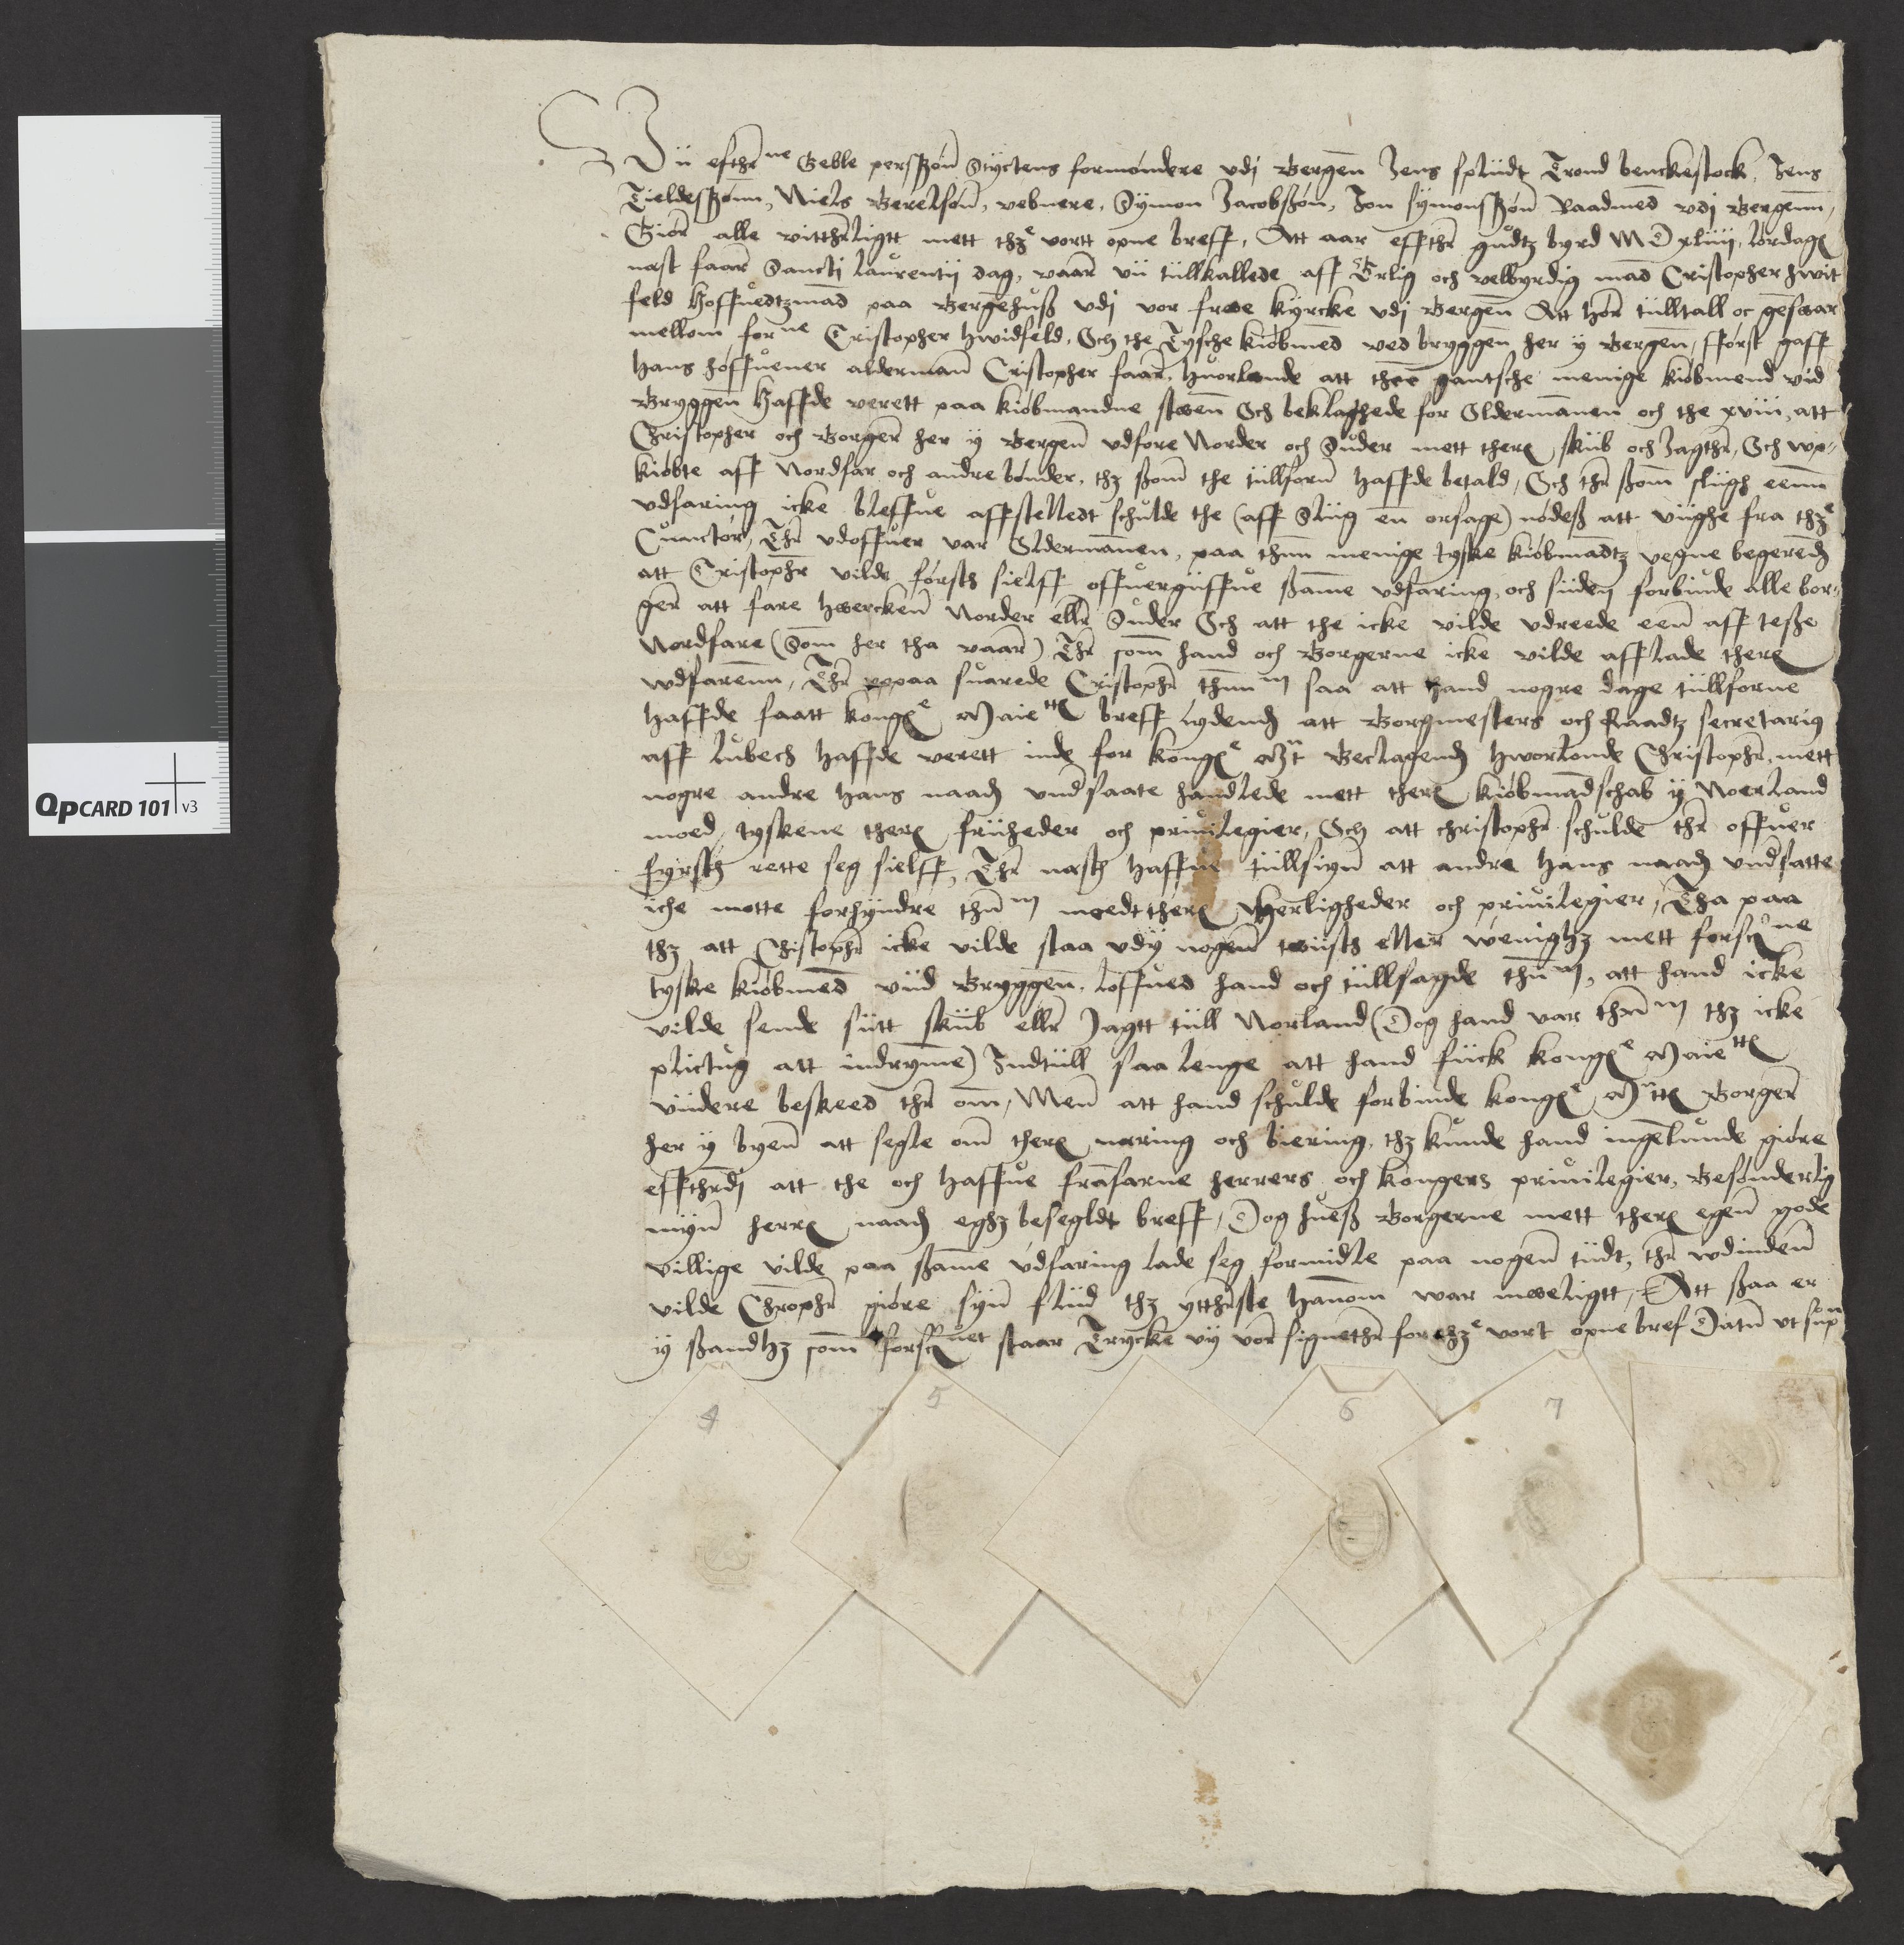 Vii efthr ne Geble perssßón Styctens formóndere vdj Bergen Jens splijdt Trond benckestock, Jens
Tieldesßónn, Niels Berelsón, vebnere, Symon Jacobßón, Jon symonsßón Raadmed vdj Bergenn,
Giór alle vitthrligtt mett thz e vortt opne breff, Att aar effthr gudtz byrd MD xliiij, lórdagh
nest faar Sancti laurentij dag, vaar vii tiillkallede aff Erlig och velbyrdig mad Cristopher hwit
feld Hoffuedtzmad paa Bergehuß vdj vor frwe kyrcke vdj Bergen Att hór tiilltall oc geswar
mellom for ne Cristopher hwidfeld, Och the Tysche kiobmed ved bryggen her y Bergen, fforst gaff
hans hóffuener alderman Cristopher faar, huorlunde att thee gantsche menige kiobmend vid
Bryggen Haffde verett paa kiobmandne stwen Och beklaghede for Oldermanen och the xviii, att
Christopher och Borger her y Bergen vdfore Norder och Suder mett there skiib och Jagthr, Och wp-
kiobte aff Nordfar och andre bónder, thz ßom the tiillforn haffde betald, Och thr ßom sliigh eenn
vdfaring icke bleffue affstelledt schulde the (aff sliig en orsage) nódeß att viighe fra thz e
Cunctór, Thr vdoffuer var Oldermanen, paa thnn menige tyske kiobmadtz vegne begerend
att Cristophr vilde fórsth sielff offuergiiffue ßame vdfaring, och siiden forbiude alle bor-
ger att fare hwercken Norder ellr Suder Och att the icke vilde vdreede een aff teße
Nordfare (Som her tha vaar) Thr som hand och Borgerne icke vilde afflade there
wdfarenn, Thr popaa suarede Cristophr thnn m saa att hand nogre dage tiillforne
haffde faatt kong e Maie tt breff lydend att Borgmesters och Raadtz secretarig
aff lubech haffde verett inde for kong e Mt Beclagend hworlonde Christophr, mett
nogre andre hans naad vndsaate handlede mett there kiobmadschab y Noerland
moed, tyskene there friiheder och priuilegier, Och att christophr schulde thr offuer
fyrsth rette seg sielff, Thr nesth haffue tiillsiyn att andre hans naad vndsatte
iche motte forhyndre thn m meedt there herligheder och priuilegier, Tha paa
thz att Chistophr icke vilde staa vdij nogen twiist eller wenighz mett forsc ne
tyske kiobmed viid Bryggen, loffued hand och tiillsagde thn m, att hand icke
vilde sende siitt skiib ellr Jagtt tiill Norland (Dog hand var thnn m thz icke
plictug att indryme) Indtiill saa lenge att hand fiick kong e Maie tt
viidere beskeed thr om, Men att hand schulde forbiude kong e M tt Borger
her y byen att segle om there nering och biering, thz kunde hand ingelunde gióre
effthrdj att the och haffue framfarne herrers och kongers priuilegier, Besónderlig
myn herre naad eghz besegldt breff, Dog hueß Borgerne mett there egen gode
villige vilde paa ßame vdfaring lade seg formidle paa nogen tiidt, thr wdinden
vilde Chrophr gióre syn fliid thz ytthrste hanom war mweligtt, Att ßaa er
y ßandhz som forsc uet staar Trycke vy vor signethr for thz e vort opne bref Datum vt supra
4 5 6 7
QPCARD 101 v3